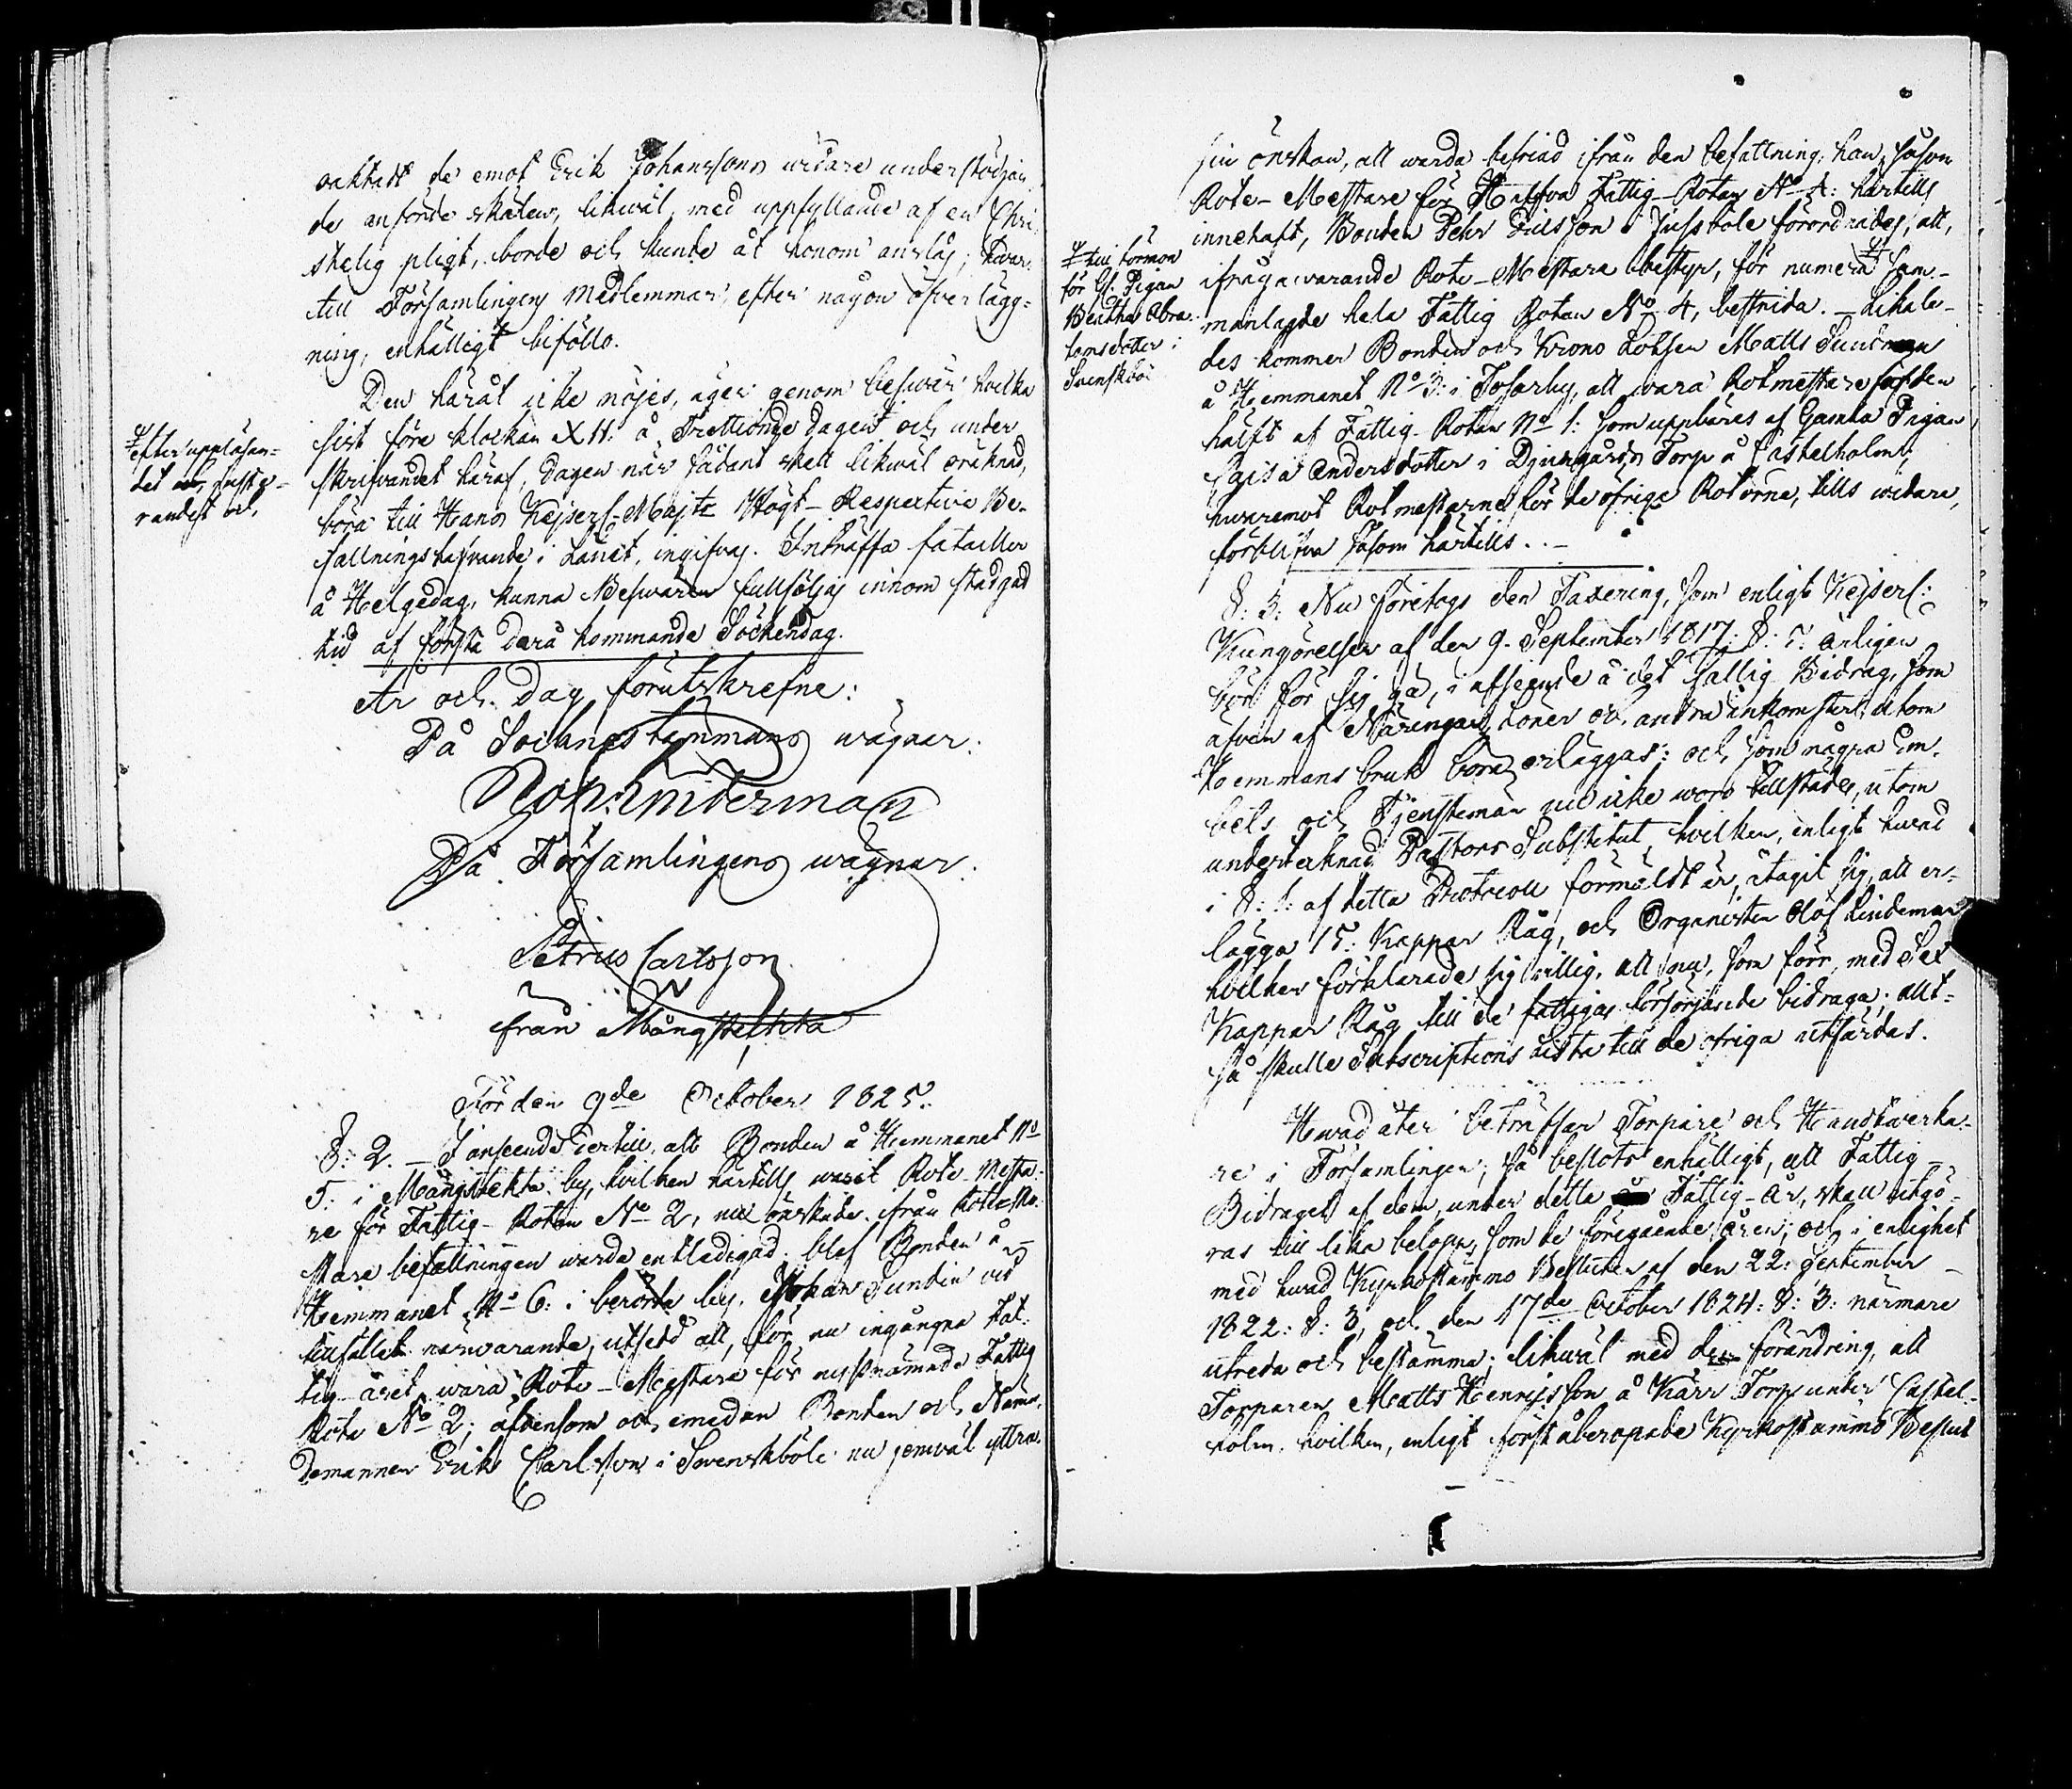 oaktadt de emot Erik Johanssons widare understödjan
de anförde skälen, likwäl, med uppfyllande af en Chri
stelig pligt, borde och kunde åt honom anslås; hwar-
till Församlingens Medlemmar, efter någon öfverlägg-
ning, enhälligt biföllo.
Den häråt icke nöjes, äger genom beswär hvilka
sist före klockan XII: å Trettionde dagen och under
skrifvandet häraf, dagen när sådant skett likwäl oräknad,
böra till Hans Kejserl. Majts Högt-Respective Be-
fallningshafvande i Länet, ingifvas. Inträffa fatallier
å Helgedag, kunna Beswären fullföljas innom stadgad
tid af första derå kommande Söckendag.
≠ efter uppläsan=
det och juste-
randet och
År och Dag förutskrefne:
På Sochnestämmans wägnar:
På Församlingens wägnar:
Petrus Carlsson
från Mångstekta
För den 9de October 1825.
§: 2. – I anseende dertill, att Bonden å Hemmanet No
5: i Mångstekta by, hvilken härtills warit Rote-Mesta-
re för Fattig-Rotan No 2, nu önskade ifrån Rote-Me-
stare befattningen warda entledigad; blef Bonden å
Hemmanet No 6: i berörda by, Johan Sundin vid
tillfället närwarande, utsedd att, för nu ingångna Fat-
tig-året wara Rote-Mestare för nyssnämnde Fattig
Rote No 2; äfvensom och emedan Bonden och Näm-
demannen Erik Carlsson i Swenskböle nu jemväl yttra-
sin önskan, att warda befriad ifrån den befattning, han, såsom
Rote-Mestare för Halfva Fattig-Rotan No 4: härtills
innehaft, Bonden Pehr Ersson i Jussböle förordnades, att,
ifrågawarande Rote-Mestare bestyr, för numera ≠ sam-
manlagde hela Fattig Rotan No 4, bestrida. – Likale-
des kommer Bonden och Krono Lotsen Matts Sundman
å Hemmanet No 3: i Tosarby, att wara Rotmestare för den
hälft af Fattig-Rotan No 1: som uppbäres af Gamla Pigan
Caisa Andersdotter i Djurgårds Torp å Castelholm;
hwaremot Rotmestarne för de öfrige Rotorne, tills widare,
förblifva såsom härtills. –
≠ till förmon
för Gl. Pigan
Beatha Abra-
hamsdotter i
Svenskböle
§: 3: Nu företogs den Taxering, som enligt Kejserl:
Kungörelsen af den 9. September 1817: §: 5. årligen
bör för sig gå, i afseende å det fattig Bidrag, som
äfven af Näringar, Löner och andra inkomster, utom
Hemmansbruk böra erläggas: och som några Em-
bets och Tjenstemän nu icke woro tillstädes, utom
undertecknad Pastors Substitut, hvilken, enligt hwad
i §: 1: af detta Protocoll förmäldt är, åtagit sig, att er-
lägga 15: Kappar Råg, och Organisten Olof Lindeman
hvilken förklarade sig willig, att nu, som förr, med Sex
Kappar Råg till de fattigas försörjande bidraga; allt-
så skulle Subscriptions Lista till de öfriga utfärdas.
Hwad åter beträffar Torpare och Handtwerka-
re i Församlingen, så beslöts enhälligt, att Fattig-
Bidraget af dem, under detta Fattig-År, skall utgö-
ras till lika belopp, som de föregående åren; och i enlighet
med hwad Kyrkostämmo Besluten af den 22: September
1822: §: 3, och den 17de October 1824: §: 3: närmare
utreda och bestämma; likwäl med den förändring, att
Torparen Matts Henricsson å Kärr Torp under Castel-
holm, hvilken, enligt först åberopade Kyrkostämmo Beslut